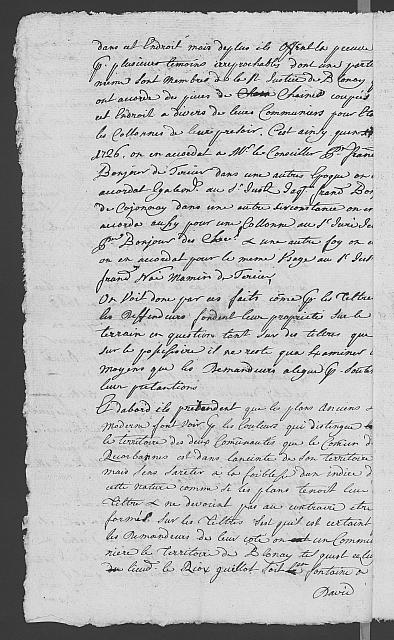 dans cet Endroit mais de plus ils offrent la preuve
p. plusieurs temoins irreprochables dont une partie
meme sont Membres de la
ont accordé des pieces de Chaines coupées
cet Endroit a divers de leurs Communiers pour
les Collonnes de leurs presoir. C'est ainsy qu'en
1726. on en accordat a Mr. le Conseiller
Bonjour de Tercier dans une autres Epoque on
accordat Egalemt. au Sr.
de Cojonnay dans une autre circonstance on en
accorda aussy pour une Collonne au Sr. Juré
Bonjour des Chev. & une autre foy on
on en accordat pour le meme Usage au Sr.
frand Noé Mamin de Tercier,
On Voit donc par ces faits côme p. les Tittres
les Deffendeurs fondent leur proprieté sur le
terrain en question tant sur des tiltres que
sur le possessoire il ne reste qua Examiner
moyens que les Demandeurs alegue p.
leur pretantions
Et dabord ils pretendent que les plans Anciens &
moderne font Voir p. les Couleurs qui distingue
le territoire des deux Comunautés que le Comun
est dans lanceinte de son territoire
mais sans sareter a la foiblesse dun indice d
cette nature comme si les plans tenoit leur
Tiltre & ne devoient pas au contraire etre
formés sur les Tiltres c'est qu'il est certaint
les Demandeurs de leur coté on un Commun
niere le Territoire de Blonay tel quest celui
du lieud. le Riox guillot soit fontaine
David